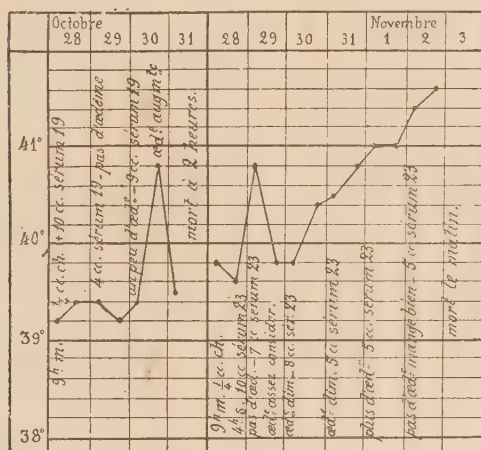 Octobre
Novembre
28 29 30 31 28 29 30 31 1 2 3
41°
40°
39°
38°
9h m. ¼ cc. ch. + 10 cc. sérum 19
4 cc. sérum 19 - pas d'œdème
un peu d'œd. - 9 cc. sérum 19
œd. augmte
mort à 2 heures.
9h m. ¼ cc. ch.
4h s. 10 cc. sérum 23
pas d'œd. - 7 cc. sérum 23
œd. assez considér.
œd. dim. - 8 cc. sér. 23
œd. dim. 5 cc. sérum 23
plus d'œd. - 5 cc. sérum 23
pas d'œd. mange bien - 5 cc. sérum 23
mort le matin.